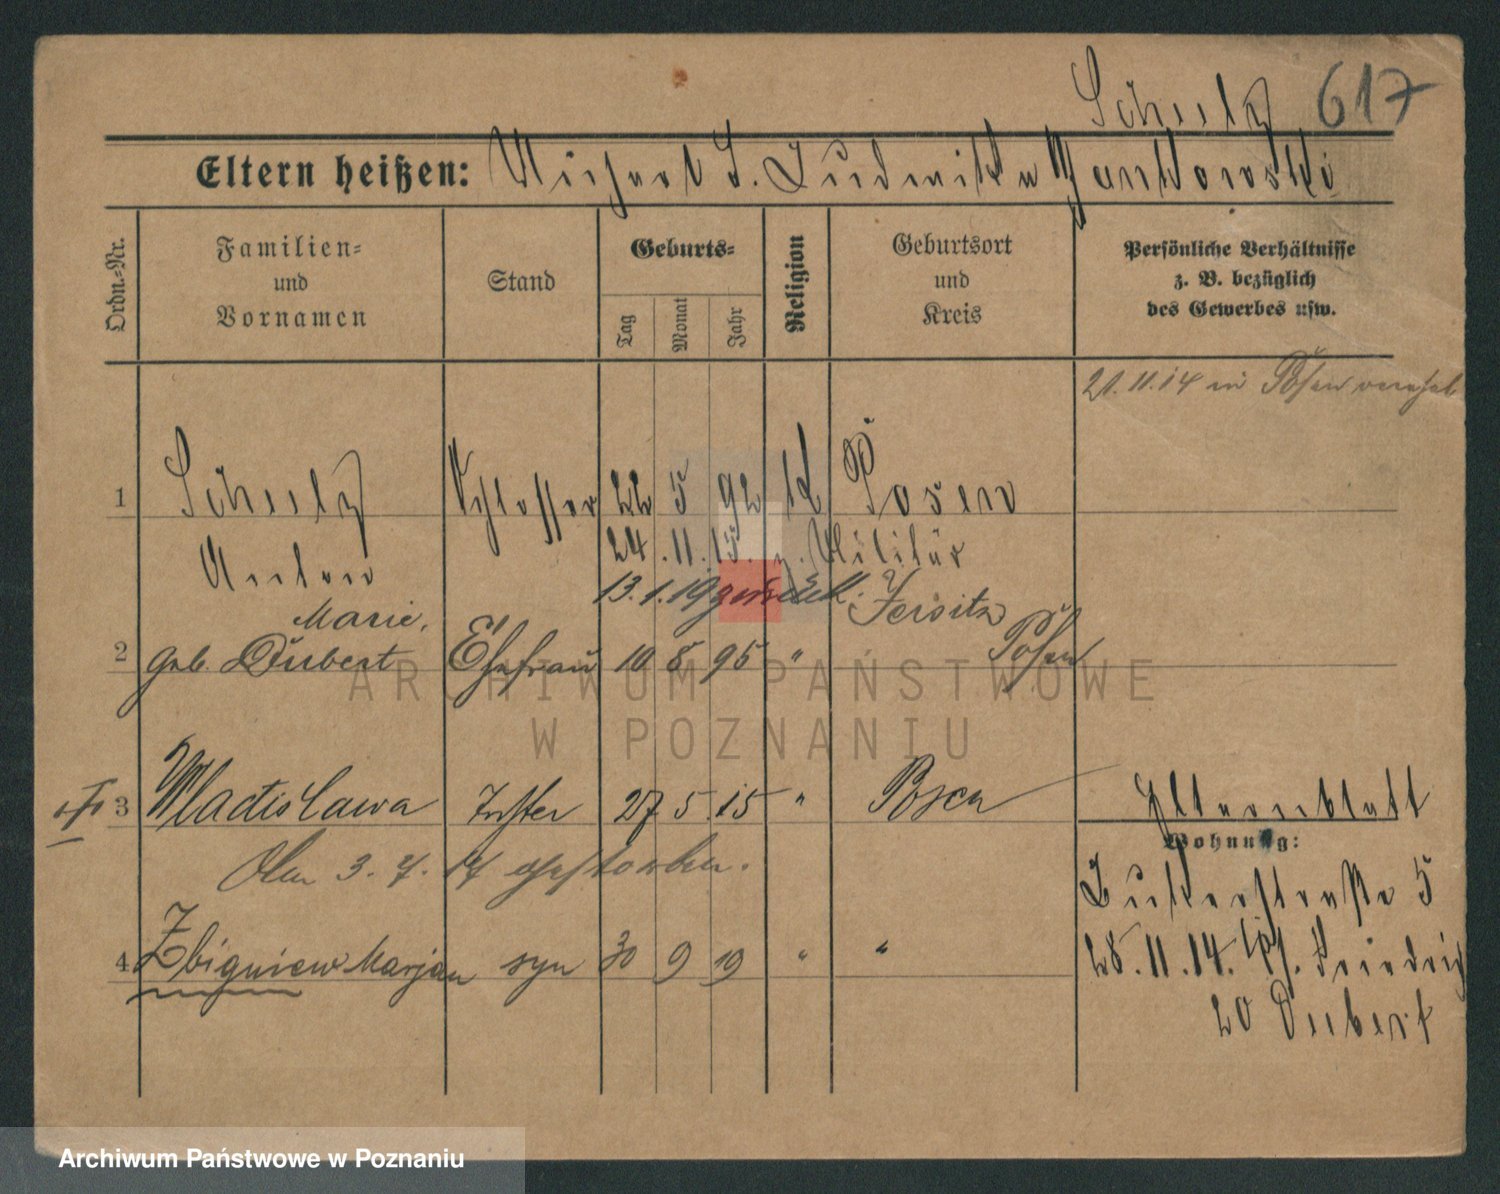 Schulz 617
Eltern heißen: Michael S. Ludwika Jankowski
Ordn.-Nr.
Familien-
und
Vornamen
Stand
Geburts-
Tag
Monat
Jahr
Religion
Geburtsort
und
Kreis
Persönliche Verhältnisse
z. B. bezüglich
des Gewerbes usw.
21.11.14 in Posen vereh.
1 Schulz Schlosser 22 5 92 Posen
Anton 24.11.15. z. Militär
13.1.19 zurück.
Marie, Jersitz
2 geb. Dubert Ehefrau 10 8 95 " Posen
3 Wladislawa Tochter 27 5 15 " Posen
Am 3. 7. 17 gestorben.
4 Zbigniew Marjan syn 30 9 19 " "
Elternblatt
Wohnung:
5
28.11.14. Friedrich
20 Dubert
ARCHIWUM PAŃSTWOWE
W POZNANIU
Archiwum Państwowe w Poznaniu